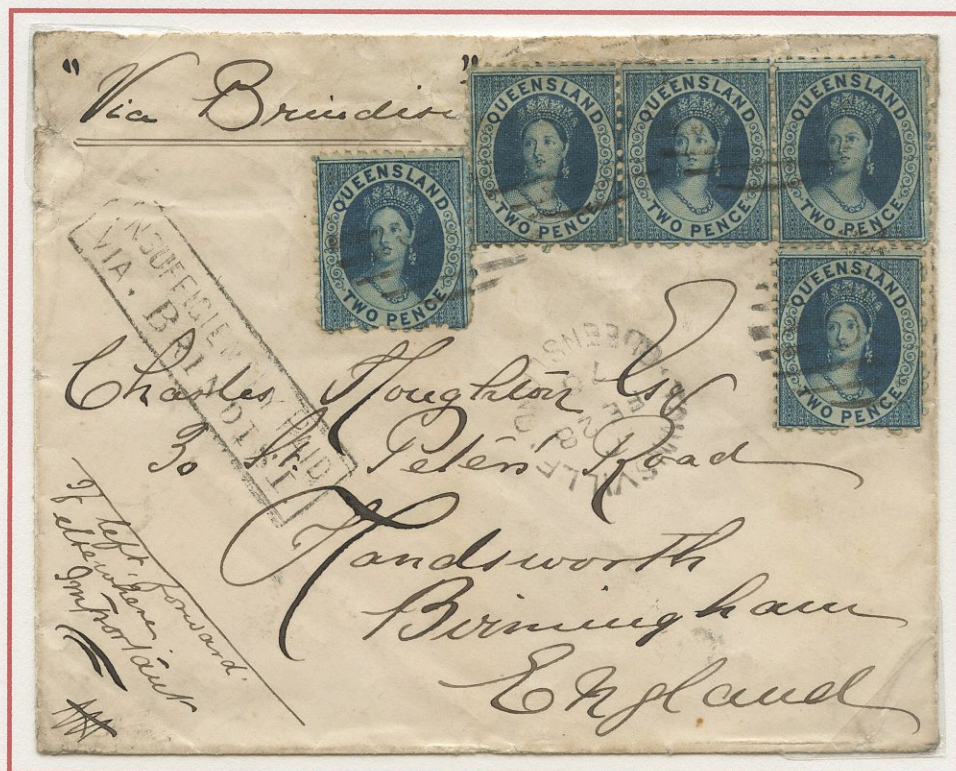 "Via Brindisi"
QUEENSLAND
TWO PENCE
QUEENSLAND
TWO PENCE
QUEENSLAND
TWO PENCE
QUEENSLAND
TWO PENCE
QUEENSLAND
TWO PENCE
INSUFFICIENTLY PAID
VIA. BRINDISI
TOWNSVILLE QUEENSLAND
FE
Charles Houghton Esq
30 St. Peters Road
Handsworth
Birmingham
England
If left, forward
Elsewhere,
Important